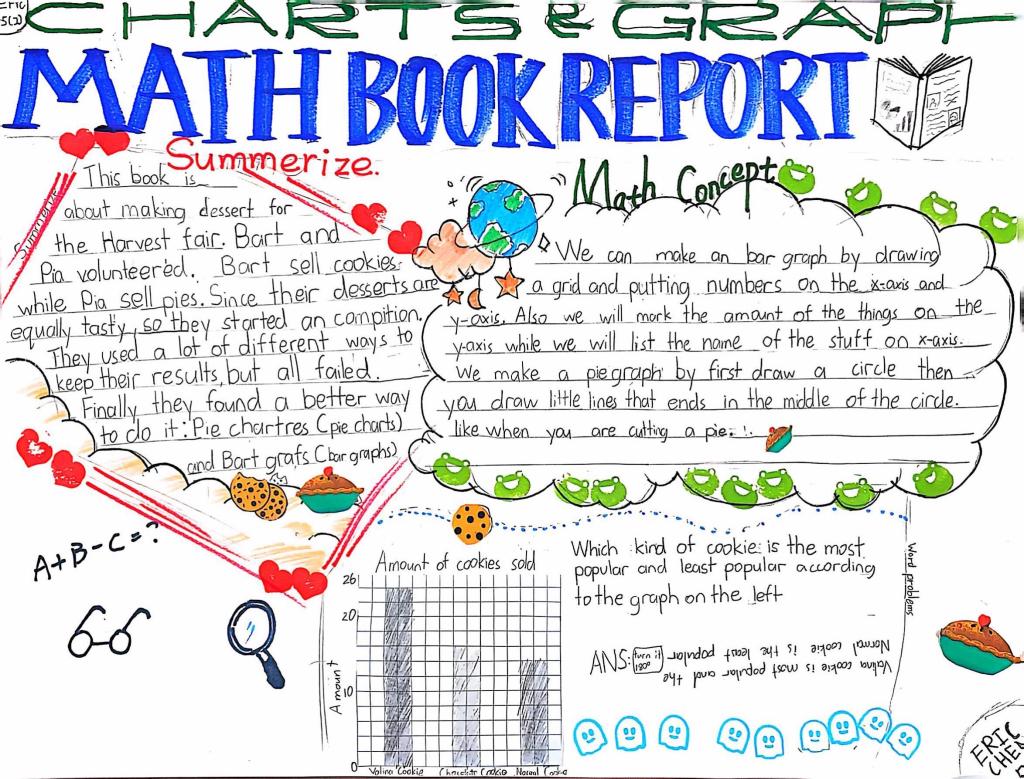 ERIC
5(2)
CHARTS & GRAPH
MATH BOOK REPORT
Summerize.
Summerize
This book is
about making dessert for
the Harvest fair. Bart and
Pia volunteered. Bart sell cookies
while Pia sell pies. Since their desserts are
equally tasty, so they started an compition.
They used a lot of different ways to
keep their results, but all failed.
Finally they found a better way
to do it: Pie chartres (pie charts)
and Bart grafs (bar graphs)
Math Concept
We can make an bar graph by drawing
a grid and putting numbers on the x-axis and
y-axis. Also we will mark the amount of the things on the
y-axis while we will list the name of the stuff on x-axis.
We make a pie graph by first draw a circle then
you draw little lines that ends in the middle of the circle.
like when you are cutting a pie. !.
A+B-C=?
Amount of cookies sold
26
20
10
0
Amount
Valina Cookie Chocolate Cookie Normal Cookie
Which kind of cookie is the most
popular and least popular according
to the graph on the left
Word problems
ANS: turn it
180°
Valina cookie is most popular and the
Normal cookie is the least popular
ERIC
CHEN